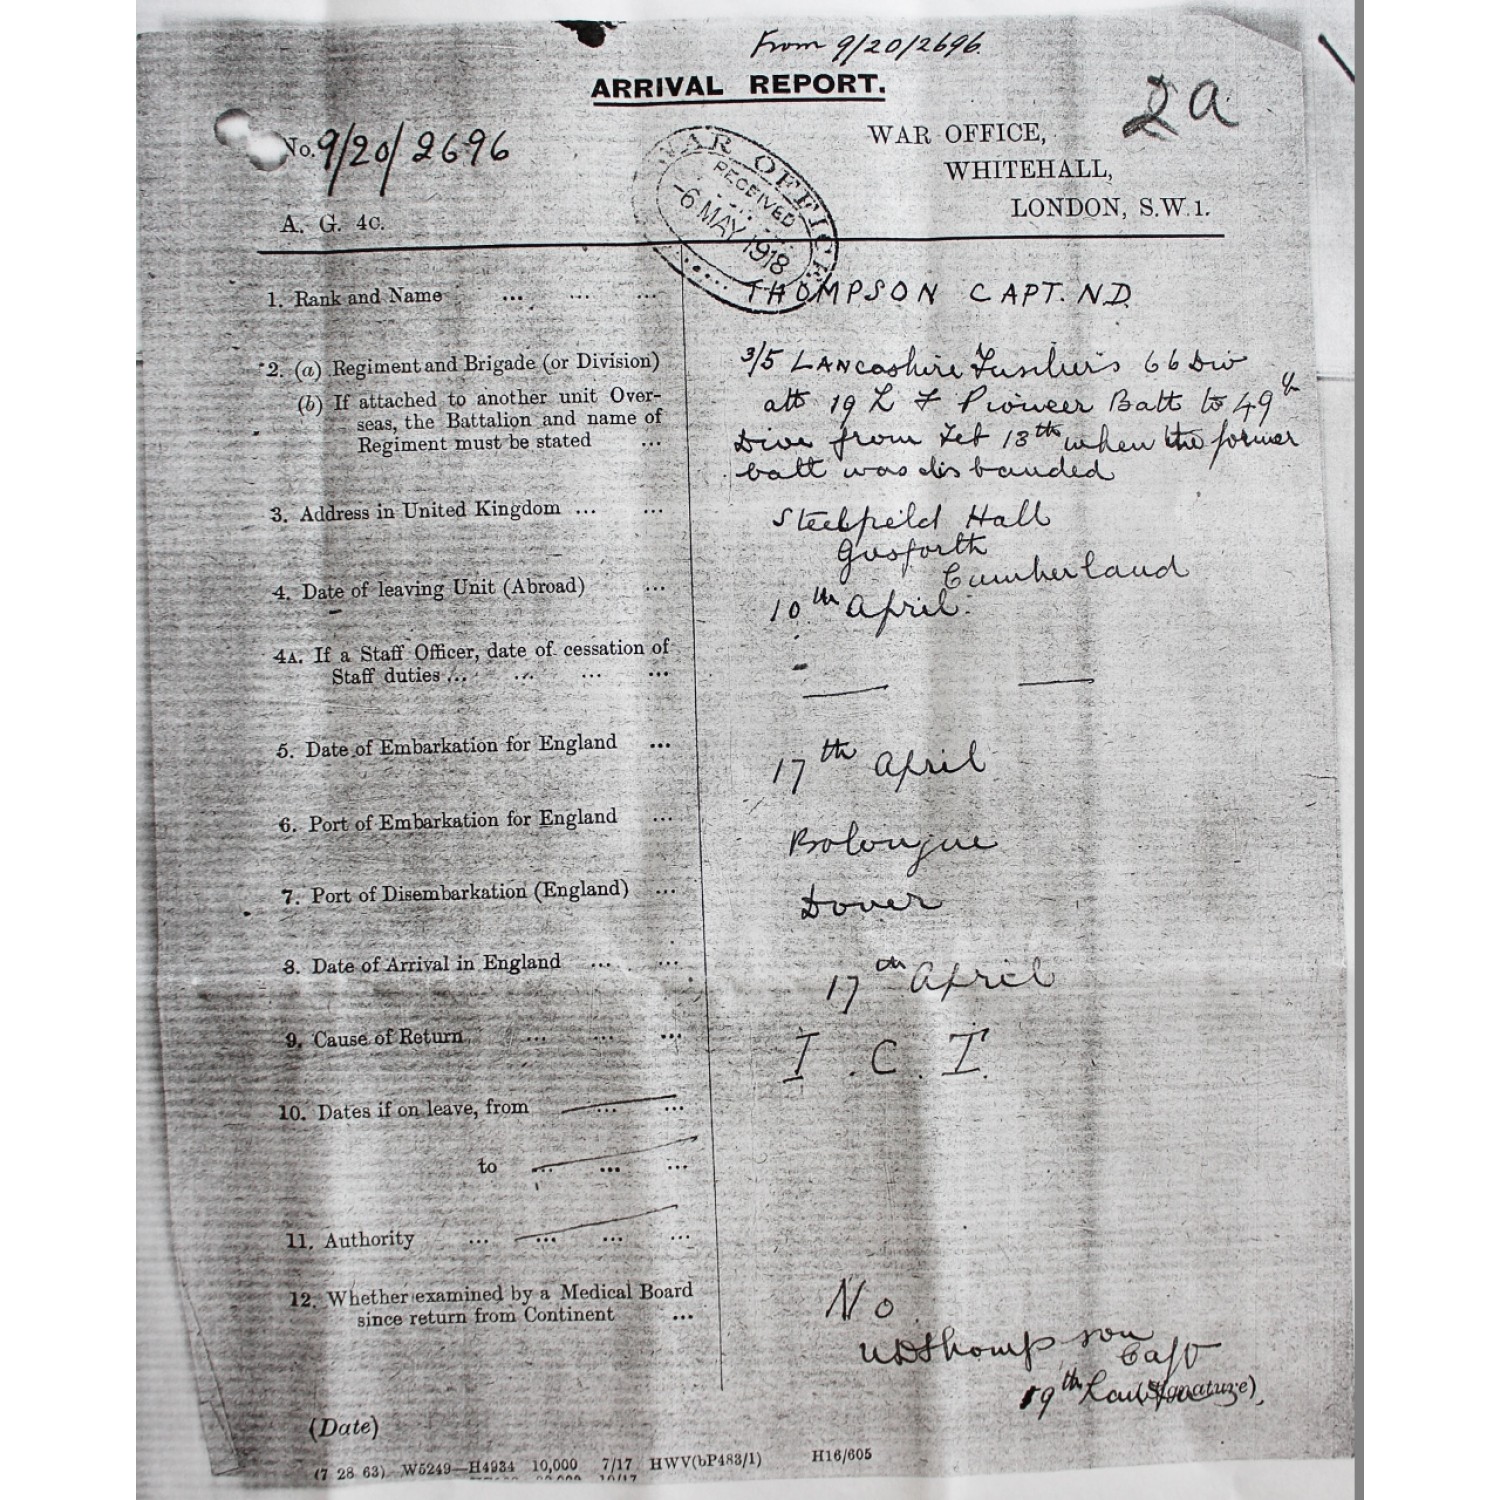 From 9/20/2696.
ARRIVAL REPORT.
2a
No. 9/20/2696
WAR OFFICE,
WHITEHALL,
LONDON, S.W.1.
A. G. 4c.
WAR OFFICE
RECEIVED
-6 MAY 1918
1. Rank and Name ... ... ... THOMPSON CAPT. N.D.
2. (a) Regiment and Brigade (or Division) 3/5 LANcashire Fusiliers 66 Div
(b) If attached to another unit Over- att 19 L F Pioneer Batt to 49th
seas, the Battalion and name of Divn from Feb 13th when the former
Regiment must be stated ... batt was disbanded
3. Address in United Kingdom ... ... Steelfield Hall
Gosforth
Cumberland
4. Date of leaving Unit (Abroad) ... 10th April.
4A. If a Staff Officer, date of cessation of
Staff duties ... ... ... ... — —
5. Date of Embarkation for England ... 17th April
6. Port of Embarkation for England ... Bolougne
7. Port of Disembarkation (England) ... Dover
8. Date of Arrival in England ... ... 17th April
9. Cause of Return ... ... ... I. C. T.
10. Dates if on leave, from ... ...
to ... ... ...
11. Authority ... ... ... ...
12. Whether examined by a Medical Board No.
since return from Continent ...
NDThompson
Capt
19th Lan (Signature),
(Date)
(7 28 63) W5249—H4934 10,000 7/17 HWV(bP483/1) H16/605
10/17